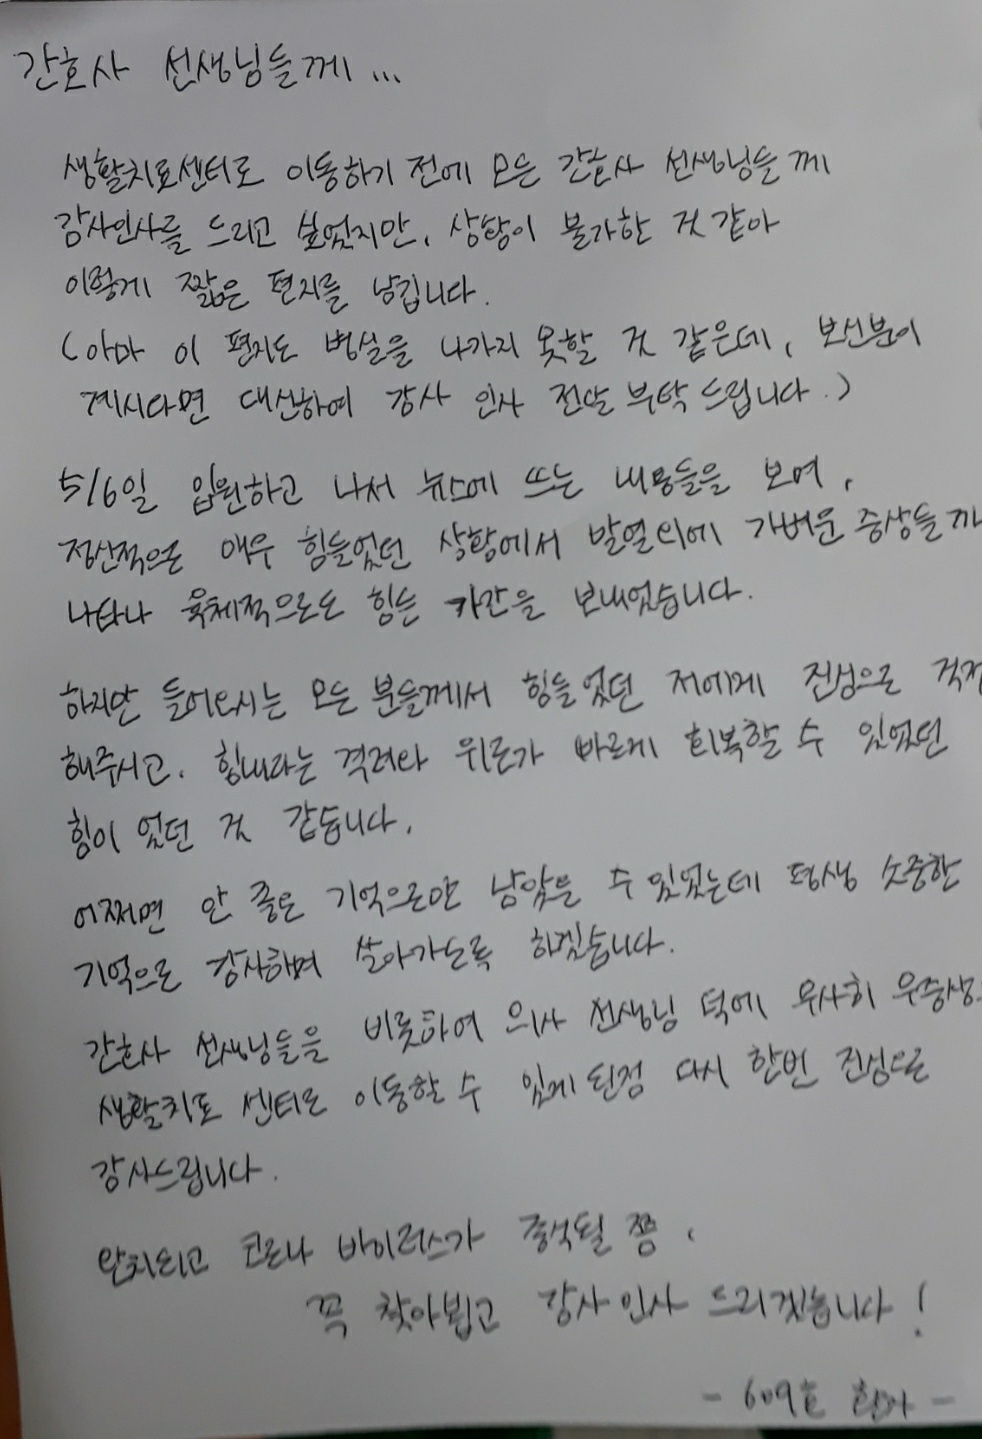 간호사 선생님들께...
생활치료센터로 이동하기 전에 모든 간호사 선생님들께
감사인사를 드리고 싶었지만, 상황이 불가한 것 같아
이렇게 짧은 편지를 남깁니다.
(아마 이 편지도 병실을 나가지 못할 것 같은데, 보신분이
계시다면 대신하여 감사 인사 전달 부탁드립니다.)
5/6일 입원하고 나서 뉴스에 뜨는 내용들을 보며,
정신적으로 매우 힘들었던 상황에서 발열 외에 가벼운 증상들까
나타나 육체적으로도 힘든 시간을 보내었습니다.
하지만 들어오시는 모든 분들께서 힘들었던 저에게 진심으로 걱정
해주시고, 힘내라는 격려와 위로가 빠르게 회복할 수 있었던
힘이 었던 것 같습니다.
어쩌면 안 좋은 기억으로만 남았을 수 있었는데 평생 소중한
기억으로 감사하며 살아가도록 하겠습니다.
간호사 선생님들을 비롯하여 의사 선생님 덕에 무사히 무증상
생활치료 센터로 이동할 수 있게 된점 다시 한번 진심으로
감사드립니다.
완치되고 코로나 바이러스가 종식될 쯤,
꼭 찾아뵙고 감사인사 드리겠습니다!
- 609호 환자 -